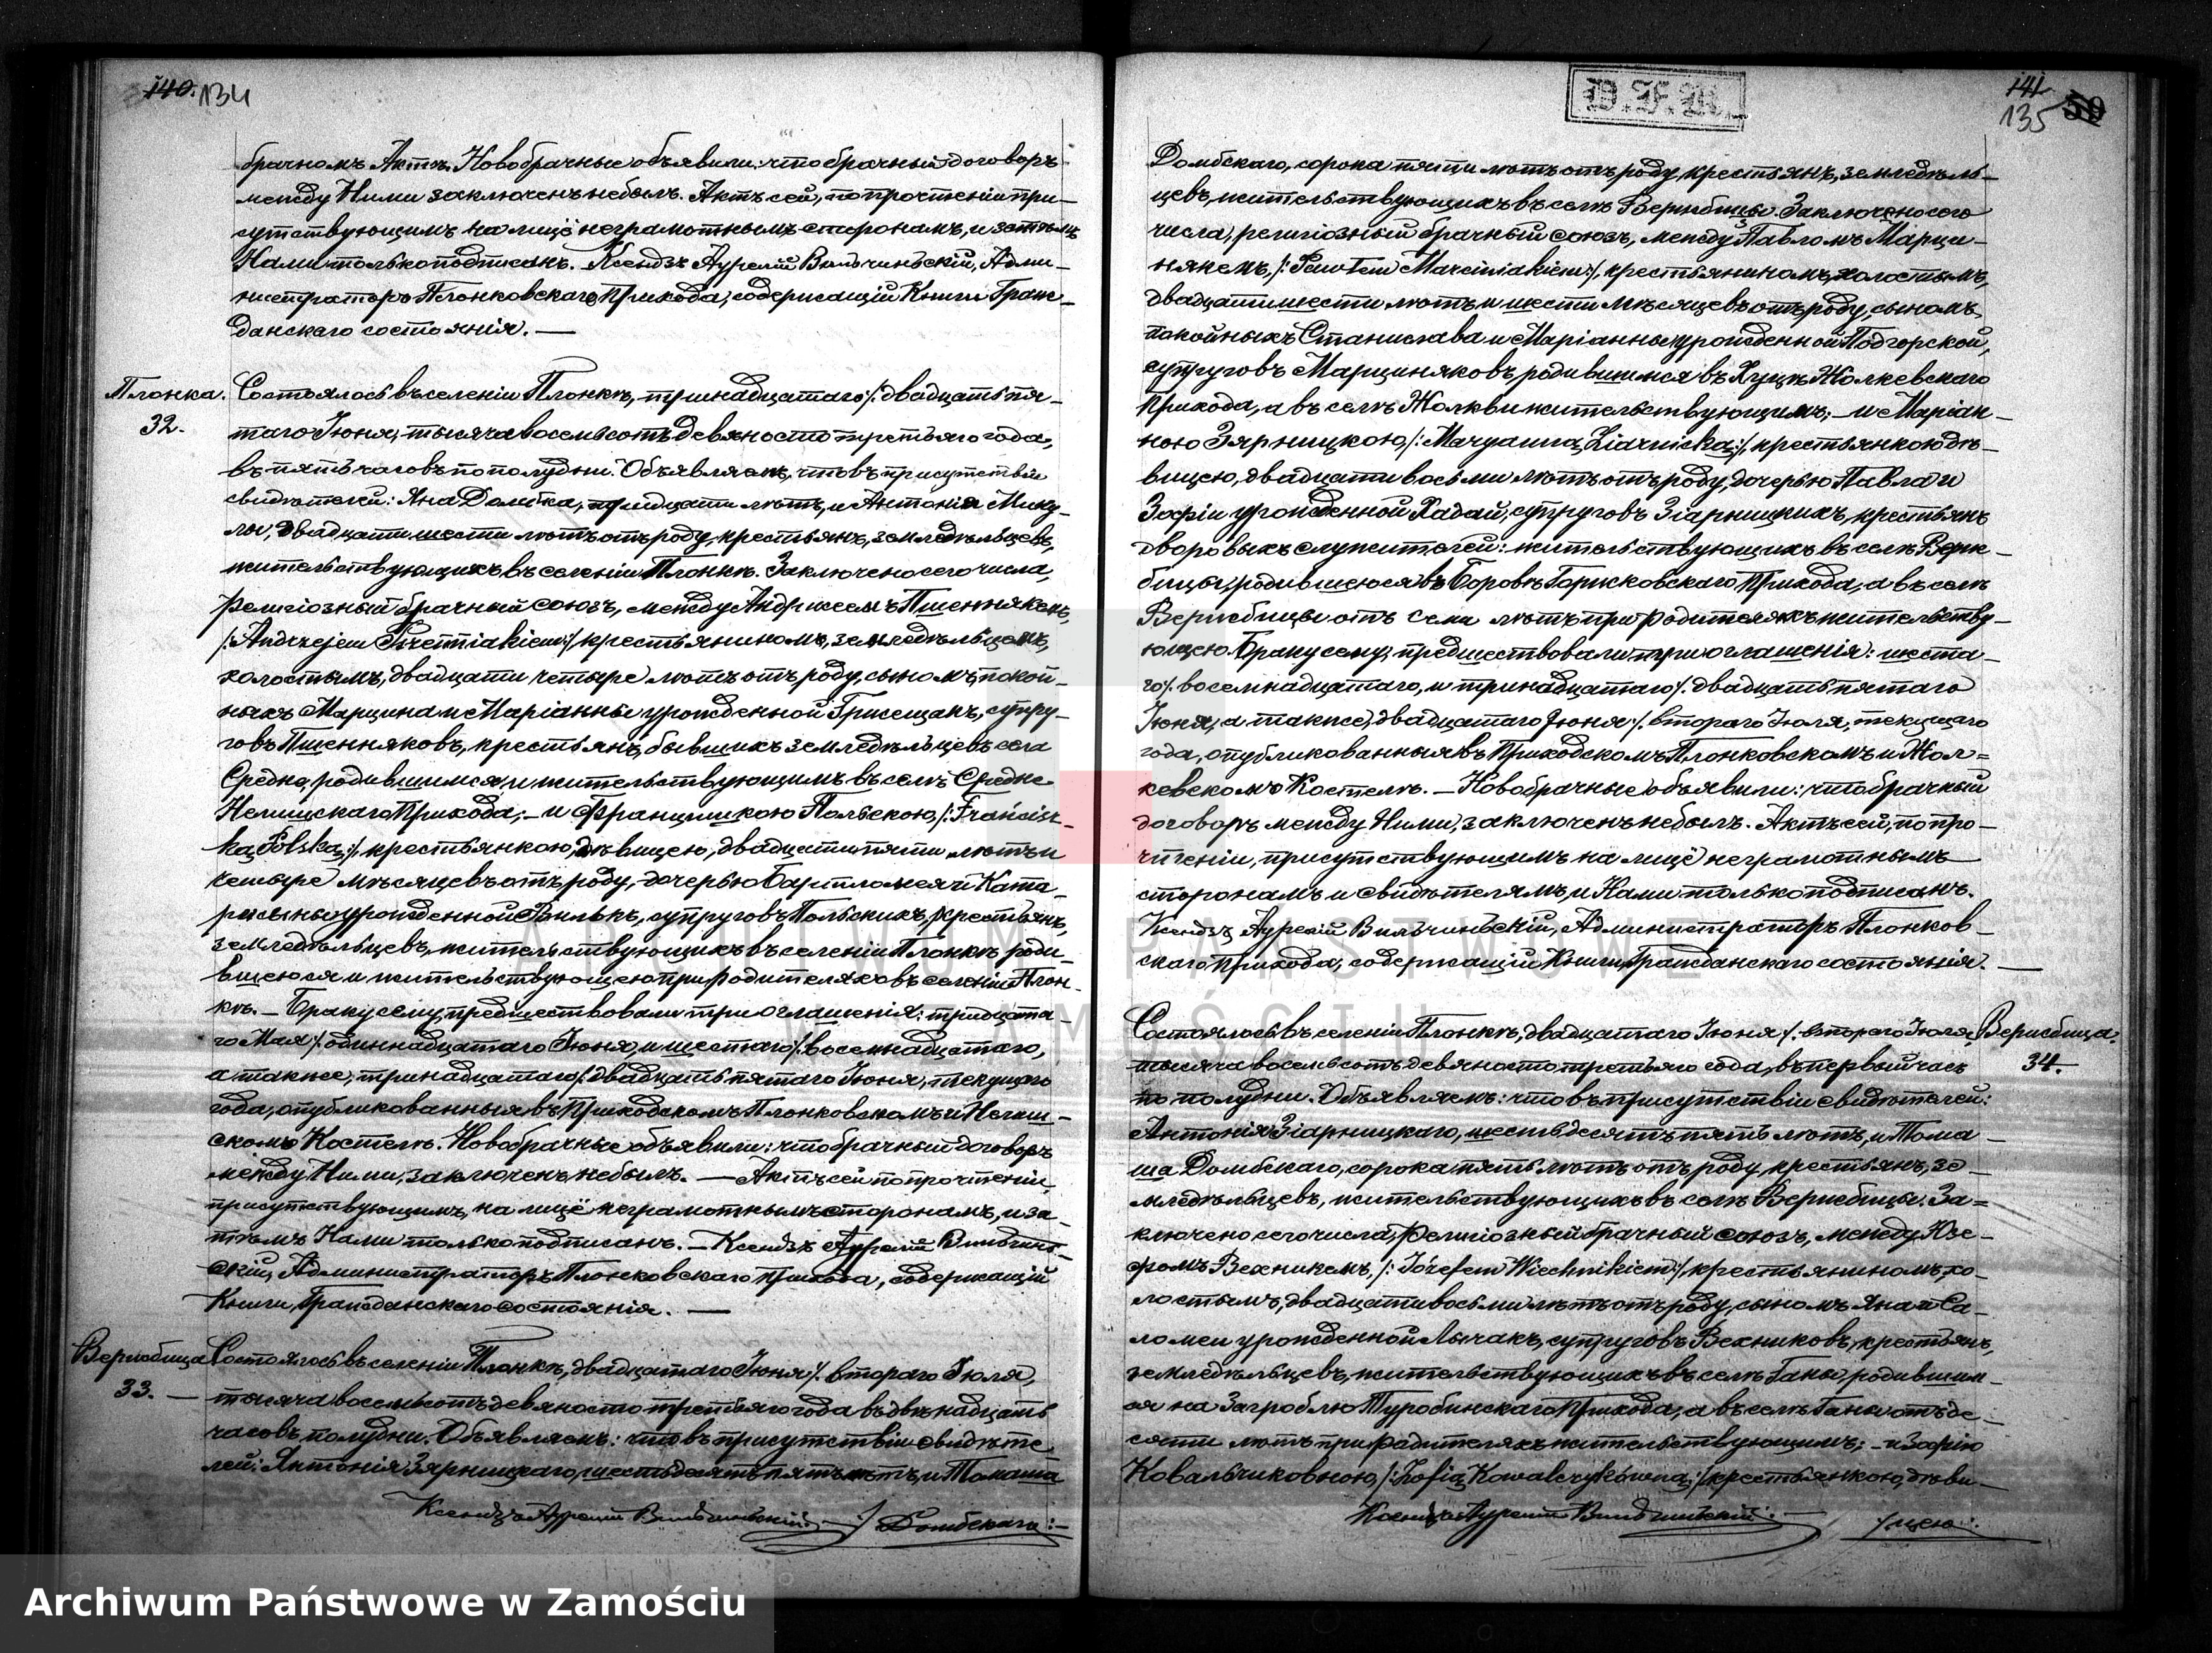 140. 134
брачномъ Актѣ. Новобрачные объявили: что брачный договоръ
между Ними заключенъ небылъ. Актъ сей, по прочтеніи при-
сутствующимъ на лицё неграмотнымъ сторонамъ, и затѣмъ
Нами только подписанъ. Ксендзъ Аурелій Вильчиньскій, Адми-
нистраторъ Плонковскаго Прихода, содержащій Книги Граж-
данскаго состоянія. —
Плонка.
32.
Состоялось въ селеніи Плонкѣ, тринадцатаго /: двадцать пя-
таго Іюня, тысяча восемьсотъ девяносто третьяго года,
въ пять часовъ по полудни. Объявляемъ, что въ присутствіи
свидѣтелей: Яна тридцати лѣтъ, и Антонія Мику-
лы, двадцати шести лѣтъ отъ роду, крестьянъ, земледѣльцевъ,
жительствующихъ въ селеніи Плонкѣ. Заключено сего числа,
религіозный брачный союзъ, между Андржеемъ Пшеннякемъ,
/: Andrzejem :/ крестьяниномъ, земледѣльцемъ,
холостымъ, двадцати четыре лѣтъ отъ роду, сыномъ, покой-
ныхъ Марцина и Маріанны урожденной супру-
говъ Пшенняковъ, крестьянъ, бывшихъ земледѣльцевъ села
Средне, родившимся и жительствующимъ въ селѣ Средне
Прихода; — и Францишкою Польскою, /: Francisz-
ką Polską :/ крестьянкою, дѣвицею, двадцати пяти лѣтъ и
четыре мѣсяцевъ отъ роду, дочерью Бартломея и Ката-
ржины урожденной Вилькъ, супруговъ Польскихъ, крестьянъ,
земледѣльцевъ, жительствующихъ въ селеніи Плонкѣ роди-
вшеюся и жительствующею при родителяхъ въ селеніи Плон-
кѣ. — Браку сему предшествовали три оглашенія: тридцата-
го Мая /: одиннадцатаго Іюня, и шестаго /: восемнадцатаго,
а также, тринадцатаго /: двадцать пятаго Іюня, текущаго
года, опубликованныя въ Приходскомъ Плонковскомъ и
скомъ Костелѣ. Новобрачные объявили: что брачный договоръ
между Ними, заключенъ небылъ. — Актъ сей по прочтеніи,
присутствующимъ, на лицё неграмотнымъ сторонамъ, и за-
тѣмъ Нами только подписанъ. — Ксендзъ Аурелій Вильчинь-
скій, Администраторъ Плонковскаго Прихода, содержащій
Книги, Гражданскаго состоянія. —
Вержбица
33. —
Состоялось въ селеніи Плонкѣ, двадцатаго Іюня /: втораго Іюля,
тысяча восемьсотъ девяносто третьяго года въ двѣнадцать
часовъ полудни. Объявляемъ: что въ присутствіи свидѣте-
лей: Антонія Зярницкаго, шестьдесять пять лѣтъ, и Томаша
Ксендзъ Аурелій Вильчиньскій: — /: Домбскаго :—
D.F.R.
141 135 50
Домбскаго, сорока пяти лѣтъ отъ роду, крестьянъ, земледѣль-
цевъ, жительствующихъ въ селѣ Вержбицы. Заключено сего
числа, религіозный брачный союзъ, между Павломъ Марци-
някемъ, /: Pawłem Marciniakiem :/, крестьяниномъ, холостымъ,
двадцати шести лѣтъ и шести мѣсяцевъ отъ роду, сыномъ,
покойныхъ Станислава и Маріанны урожденной Подгорской,
супруговъ Марциняковъ, родившимся въ Жолкевскаго
Прихода, а въ селѣ Жолкви жительствующимъ; — и Маріан-
ною Зярницкою, /: Maryanną Ziarnicką :/, крестьянкою дѣ-
вицею, двадцати восьми лѣтъ отъ роду, дочерью Павла и
Зофіи урожденной Хадай, супруговъ Зіарницкихъ, крестьянъ
дворовыхъ служителей: жительствующихъ въ селѣ Верж-
бицы, родившеюся въ Боровѣ Горжковскаго Прихода, а въ селѣ
Вержбицы отъ семи лѣтъ при родителяхъ жительству-
ющею. Браку сему, предшествовали три оглашенія: шеста-
го /: восемнадцатаго, и тринадцатаго /: двадцать пятаго
Іюня, а также, двадцатаго Іюня /: втораго Іюля, текущаго
года, опубликованныя въ Приходскомъ Плонковскомъ и Жол=
кевскомъ Костелѣ. — Новобрачные объявили: что брачный
договоръ между Ними, заключенъ небылъ. — Актъ сей, по про-
чтеніи, присутствующимъ на лицё неграмотнымъ
сторонамъ и свидѣтелямъ, и Нами только подписанъ.
Ксендзъ Аурелій Вильчиньскій, Администраторъ Плонков-
скаго Прихода, содержащій Книги, Гражданскаго состоянія. —
Вержбица.
34.
Состоялось въ селеніи Плонкѣ, двадцатаго Іюня /: втораго Іюля,
тысяча восемьсотъ девяносто третьяго года, въ первый часъ
по полудни. Объявляемъ: что въ присутствіи свидѣтелей:
Антонія Зіарницкаго, шестьдесятъ пять лѣтъ, и Тома-
ша Домбскаго, сорока пять лѣтъ отъ роду, крестьянъ, зе-
мледѣльцевъ, жительствующихъ въ селѣ Вержбицы. За=
ключено сего числа, религіозный брачный союзъ, между Юзе-
фомъ Вехникемъ, /: Józefem Wiechnikiem :/, крестьяниномъ, хо-
лостымъ, двадцати восьми лѣтъ отъ роду, сыномъ Яна и Са-
ломеи урожденной Лычакъ, супруговъ Вехниковъ, крестьянъ,
земледѣльцевъ, жительствующихъ въ селѣ Ганы, родившим-
ся на Загроблю Туробинскаго Прихода, а въ селѣ Ганы отъ де-
сяти лѣтъ при родителяхъ жительствующимъ; — и Зофіею
Ковальчиковною, /: Zofią Kowalczykówną :/ крестьянкою, дѣви-
Ксендзъ Аурелій Вильчиньскій: — /: цею :.
ARCHIWUM PAŃSTWOWE
W ZAMOŚCIU
Archiwum Państwowe w Zamościu